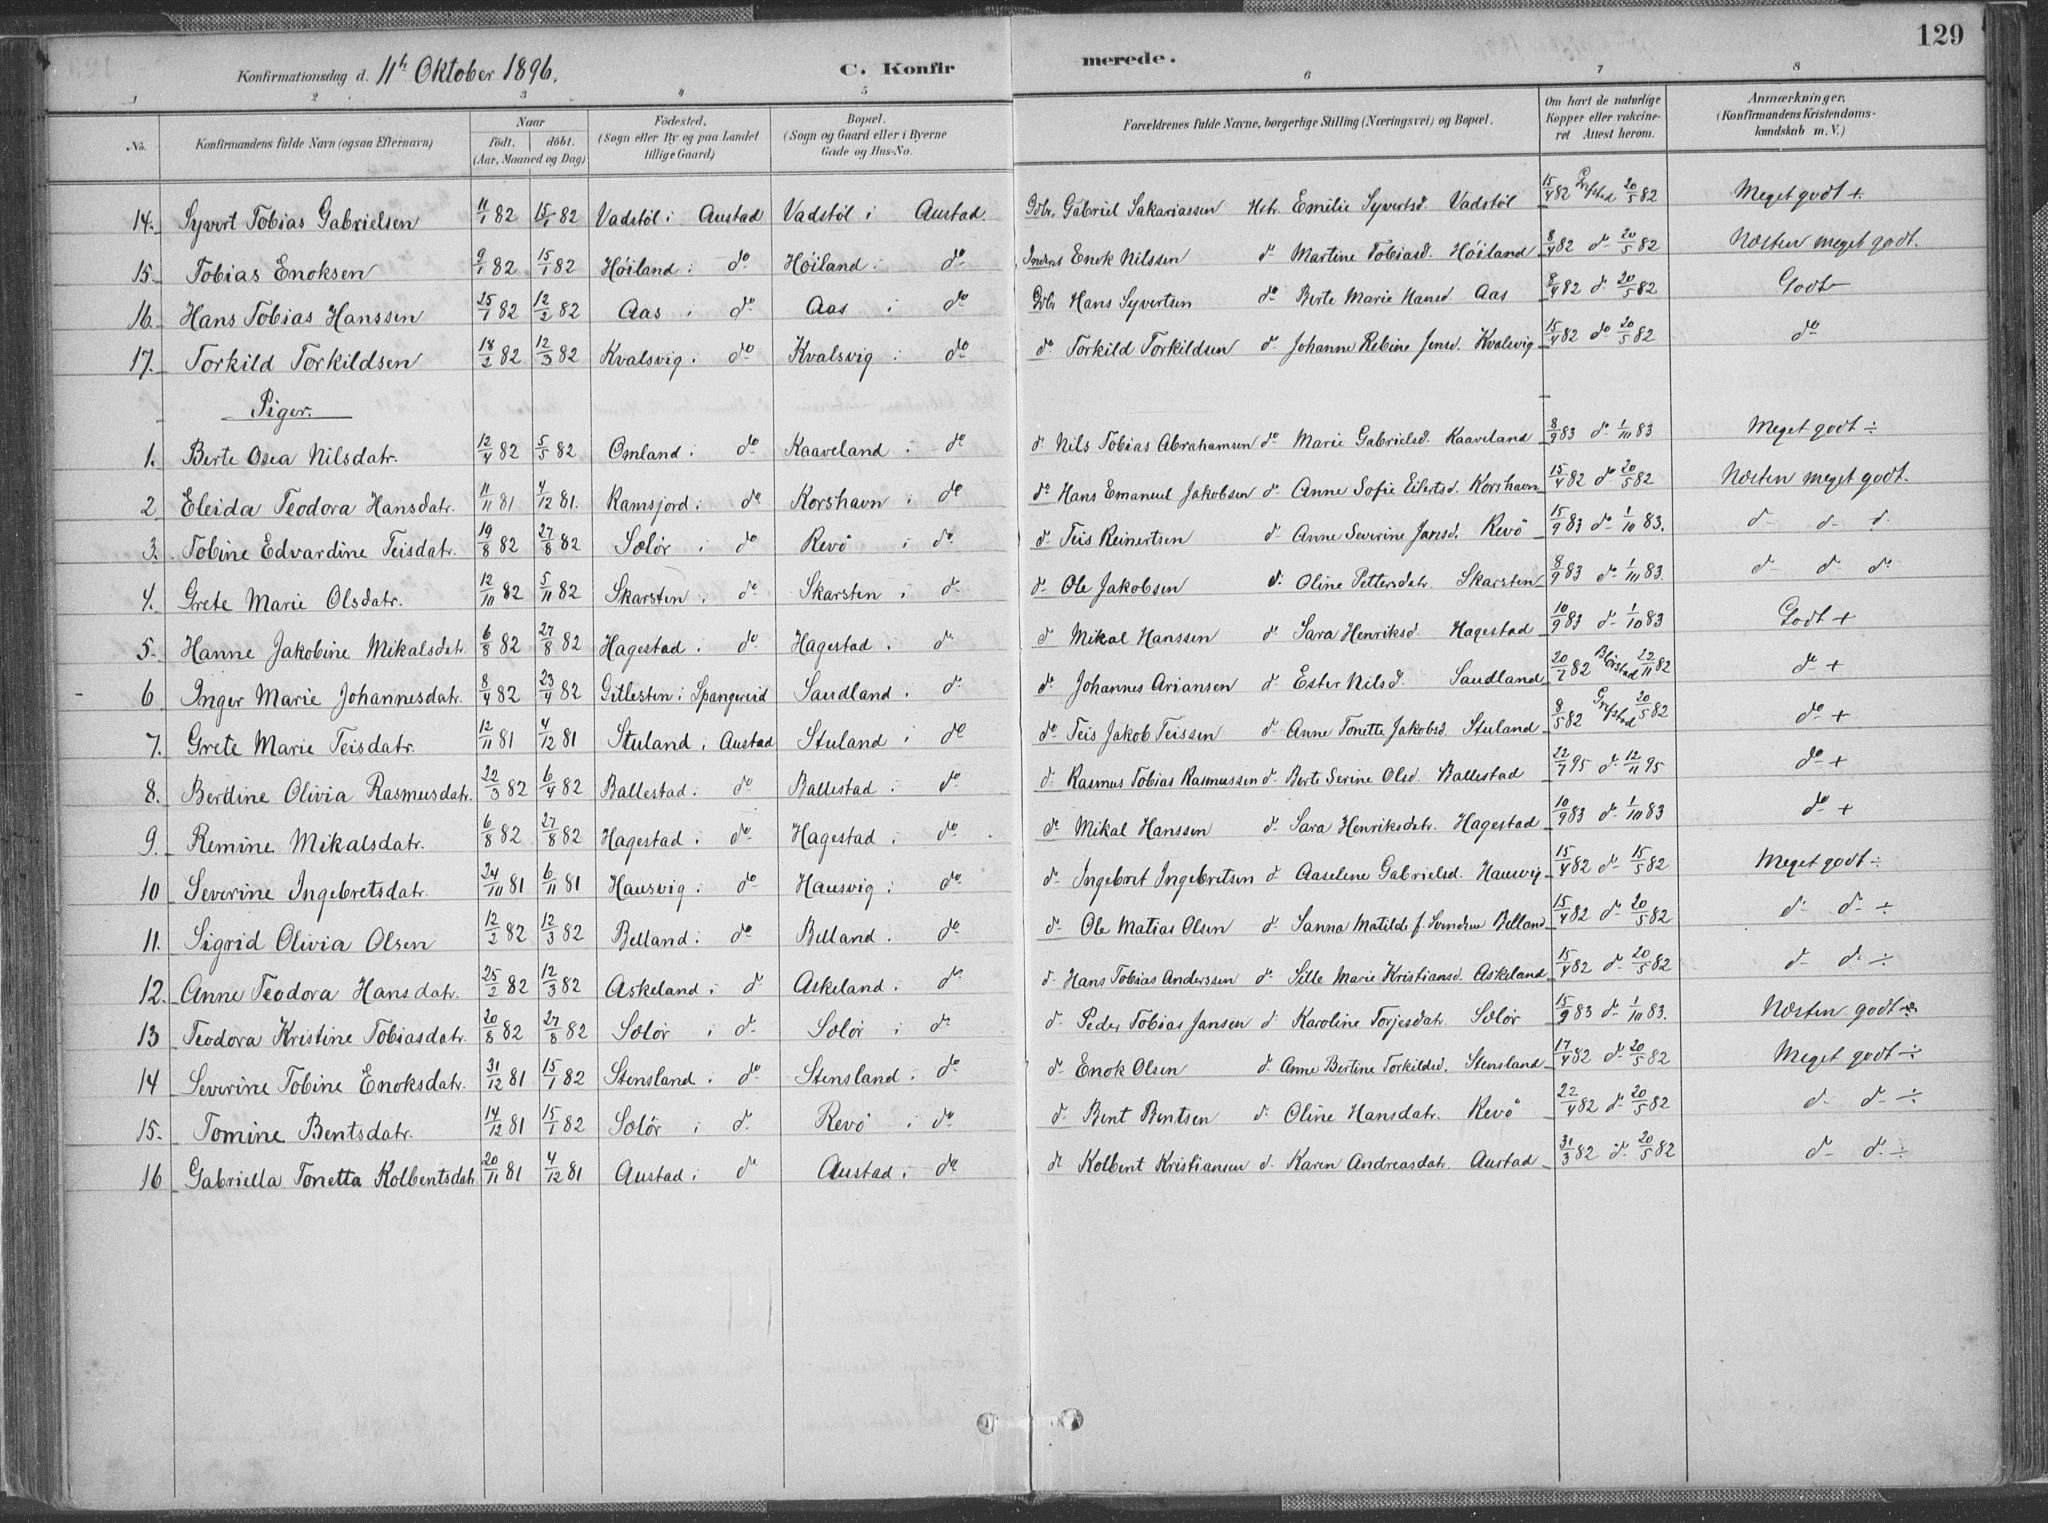 129
Konfirmationsdag d. 11te Oktober 1896. C. Konfir merede.
1 2 3 4 5 6 7 8
No. Konfirmandens fulde Navn (ogsaa Efternavn) Naar født. døbt. (Aar, Maaned og Dag) Fødested. (Sogn eller By og paa Landet tillige Gaard) Bopæl. (Sogn og Gaard eller i Byerne Gade og Hus-No. Forældrenes fulde Navne, borgerlige Stilling (Næringsvei) og Bopæl. Om havt de naturlige Kopper eller vakcineret Attest herom. Anmærkninger. (Konfirmandens Kristendomskundskab m. V.)
14. Syvert Tobias Gabrielsen 11/1 82 15/1 82 Vadstøl i Austad Vadstøl i Austad. Gbr. Gabriel Sakariassen Hstr. Emilie Syvertsd. Vadstøl 15/4 82 20/5 82 Meget godt +
15. Tobias Enoksen 9/1 82 15/1 82 Høiland i do Høiland i do Enok Nilssen do Martine Tobiasd. Høiland 8/4 82 do 20/5 82 Næsten meget godt.
16. Hans Tobias Hanssen 25/1 82 12/2 82 Aas i do Aas i do Gbr Hans Syvertsen do Berte Marie Hansd. Aas 8/4 82 do 20/5 82 Godt
17. Torkild Torkildsen 18/2 82 12/3 82 Kvalsvig i do Kvalsvig i do do Torkild Torkildsen do Johanne Rebine Jensd. Kvalsvig 15/4 82 do 20/5 82 do
Piger.
1. Berte Osea Nilsdatr. 12/4 82 5/5 82 Omland i do Kaaveland i do do Nils Tobias Abrahamsen do Marie Gabrielsd. Kaaveland 8/9 83 do 1/10 83 Meget godt ÷
2 Eleida Teodora Hansdatr. 11/11 81 4/12 81. Ramsjord i do Korshavn i do do Hans Emanuel Jakobsen do Anne Sofie Eilertsd. Korshavn 15/4 82 do 20/5 82 Næsten meget godt.
3. Tobine Edvardine Teisdatr. 19/8 82 27/8 82 Sælør i do Revø i do do Teis Reinertsen do Anne Severine Jansd. Revø 15/9 83 do 1/10 83. do do do
4. Grete Marie Olsdatr. 12/10 82 5/11 82 Skarsten i do Skarsten i do do Ole Jakobsen do Oline Pettersdatr. Skarsten 8/9 83 do 1/10 83. do do do
5. Hanne Jakobine Mikalsdatr. 6/8 82 27/8 82 Hagestad i do Hagestad i do do Mikal Hanssen do Sara Henriksd. Hagestad 10/9 83 do 1/10 83 Godt +
6 Inger Marie Johannesdatr. 8/4 82 23/4 82 Gitlesten i Spangereid Saudland i do do Johannes Ariansen do Ester Nilsd. Saudland 20/7 82 22/11 82 do +
7. Grete Marie Teisdatr. 12/11 81 4/12 81 Stuland i Austad Stuland i do do Teis Jakob Teissen do Anne Tonette Jakobsd. Stuland 8/5 82 20/5 82 do +
8. Berdine Olivia Rasmusdatr. 22/3 82 6/4 82 Ballestad i do Ballestad i do do Rasmus Tobias Rasmussen do Berte Serine Olsd. Ballestad 22/7 95 do 12/11 95 do +
9. Remine Mikalsdatr. 6/8 82 27/8 82 Hagestad i do Hagestad i do do Mikal Hanssen do Sara Henriksdatr. Hagestad 10/9 83 do 1/10 83 do +
10 Severine Ingebretsdatr. 24/10 81 6/11 81 Hausvig i do Hausvig i do do Ingebret Ingebretsen do Aaselene Gabrielsd. Hausvig 15/4 82 do 15/5 82 Meget godt ÷
11. Sigrid Olivia Olsen 12/2 82 12/3 82 Belland i do Belland i do do Ole Matias Olsen do Sanna Matilde f. Svendsen Belland 15/4 82 do 20/5 82 do do ÷
12. Anne Teodora Hansdatr. 25/2 82 12/3 82 Askeland i do Askeland i do do Hans Tobias Anderssen do Sille Marie Kristiansd. Askeland 15/4 82 do 20/5 82 do do ÷
13 Teodora Kristine Tobiasdatr. 20/8 82 27/8 82 Sælør i do Sælør i do do Peder Tobias Jansen do Karoline Torjesdatr. Sælør 15/9 83 do 1/10 83. Næsten godt
14 Severine Tobine Enoksdatr. 31/12 81 15/1 82 Stensland i do Stensland i do do Enok Olsen do Anne Bertine Torkildsd. Stensland 17/4 82 do 20/5 82 Meget godt ÷
15. Tomine Bentsdatr. 14/12 81 15/1 82 Sælør i do Revø i do do Bent Bentsen do Oline Hansdatr. Revø 22/4 82 do 20/5 82 do do ÷
16 Gabriella Tonetta Kolbentsdatr 20/11 81 4/12 81 Austad i do Austad i do do Kolbent Kristiansen do Karen Andreasdatr. Austad 31/3 82 do 20/5 82 do do ÷